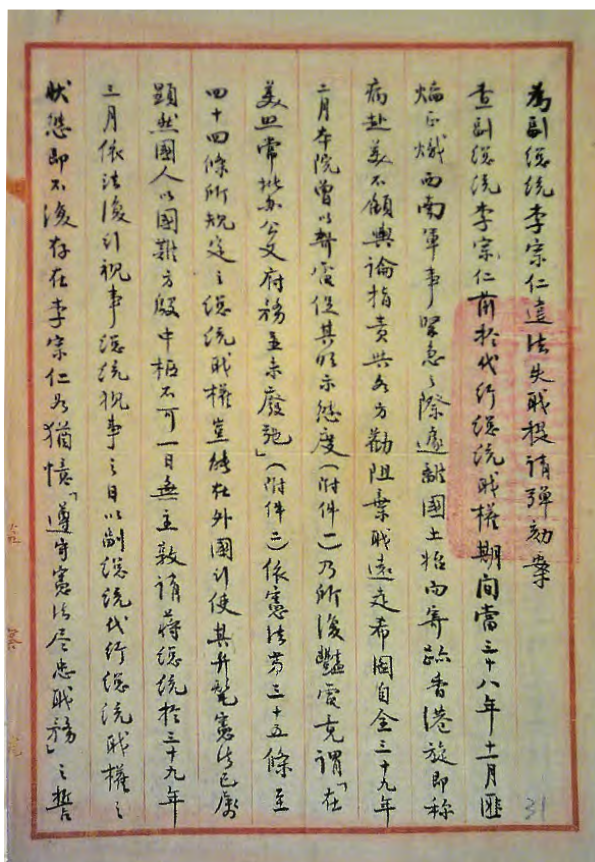 為副總統李宗仁違法失職提請彈劾案
查副總統李宗仁前於代行總統職權期間當三十八年十一月匪
焰正熾西南軍事緊急之際遽離國土始而寄跡香港旋即稱
病赴美不顧輿論指責與各方勸阻棄職遠走希圖自全三十九年
二月本院曾以電促其明示態度(附件一)乃所復電竟謂「在
美照常批办公文府務並未廢弛」(附件二)依憲法第三十五條至
四十四條所規定之總統職權豈能在外國行使其弁髦憲法已屬
顯然國人以國難方殷中樞不可一日無主敦請蔣總統於三十九年
三月依法復行視事總統視事之日以副總統代行總統職權之
狀態即不復存在李宗仁如猶憶「遵守憲法尽忠職務」之誓
31